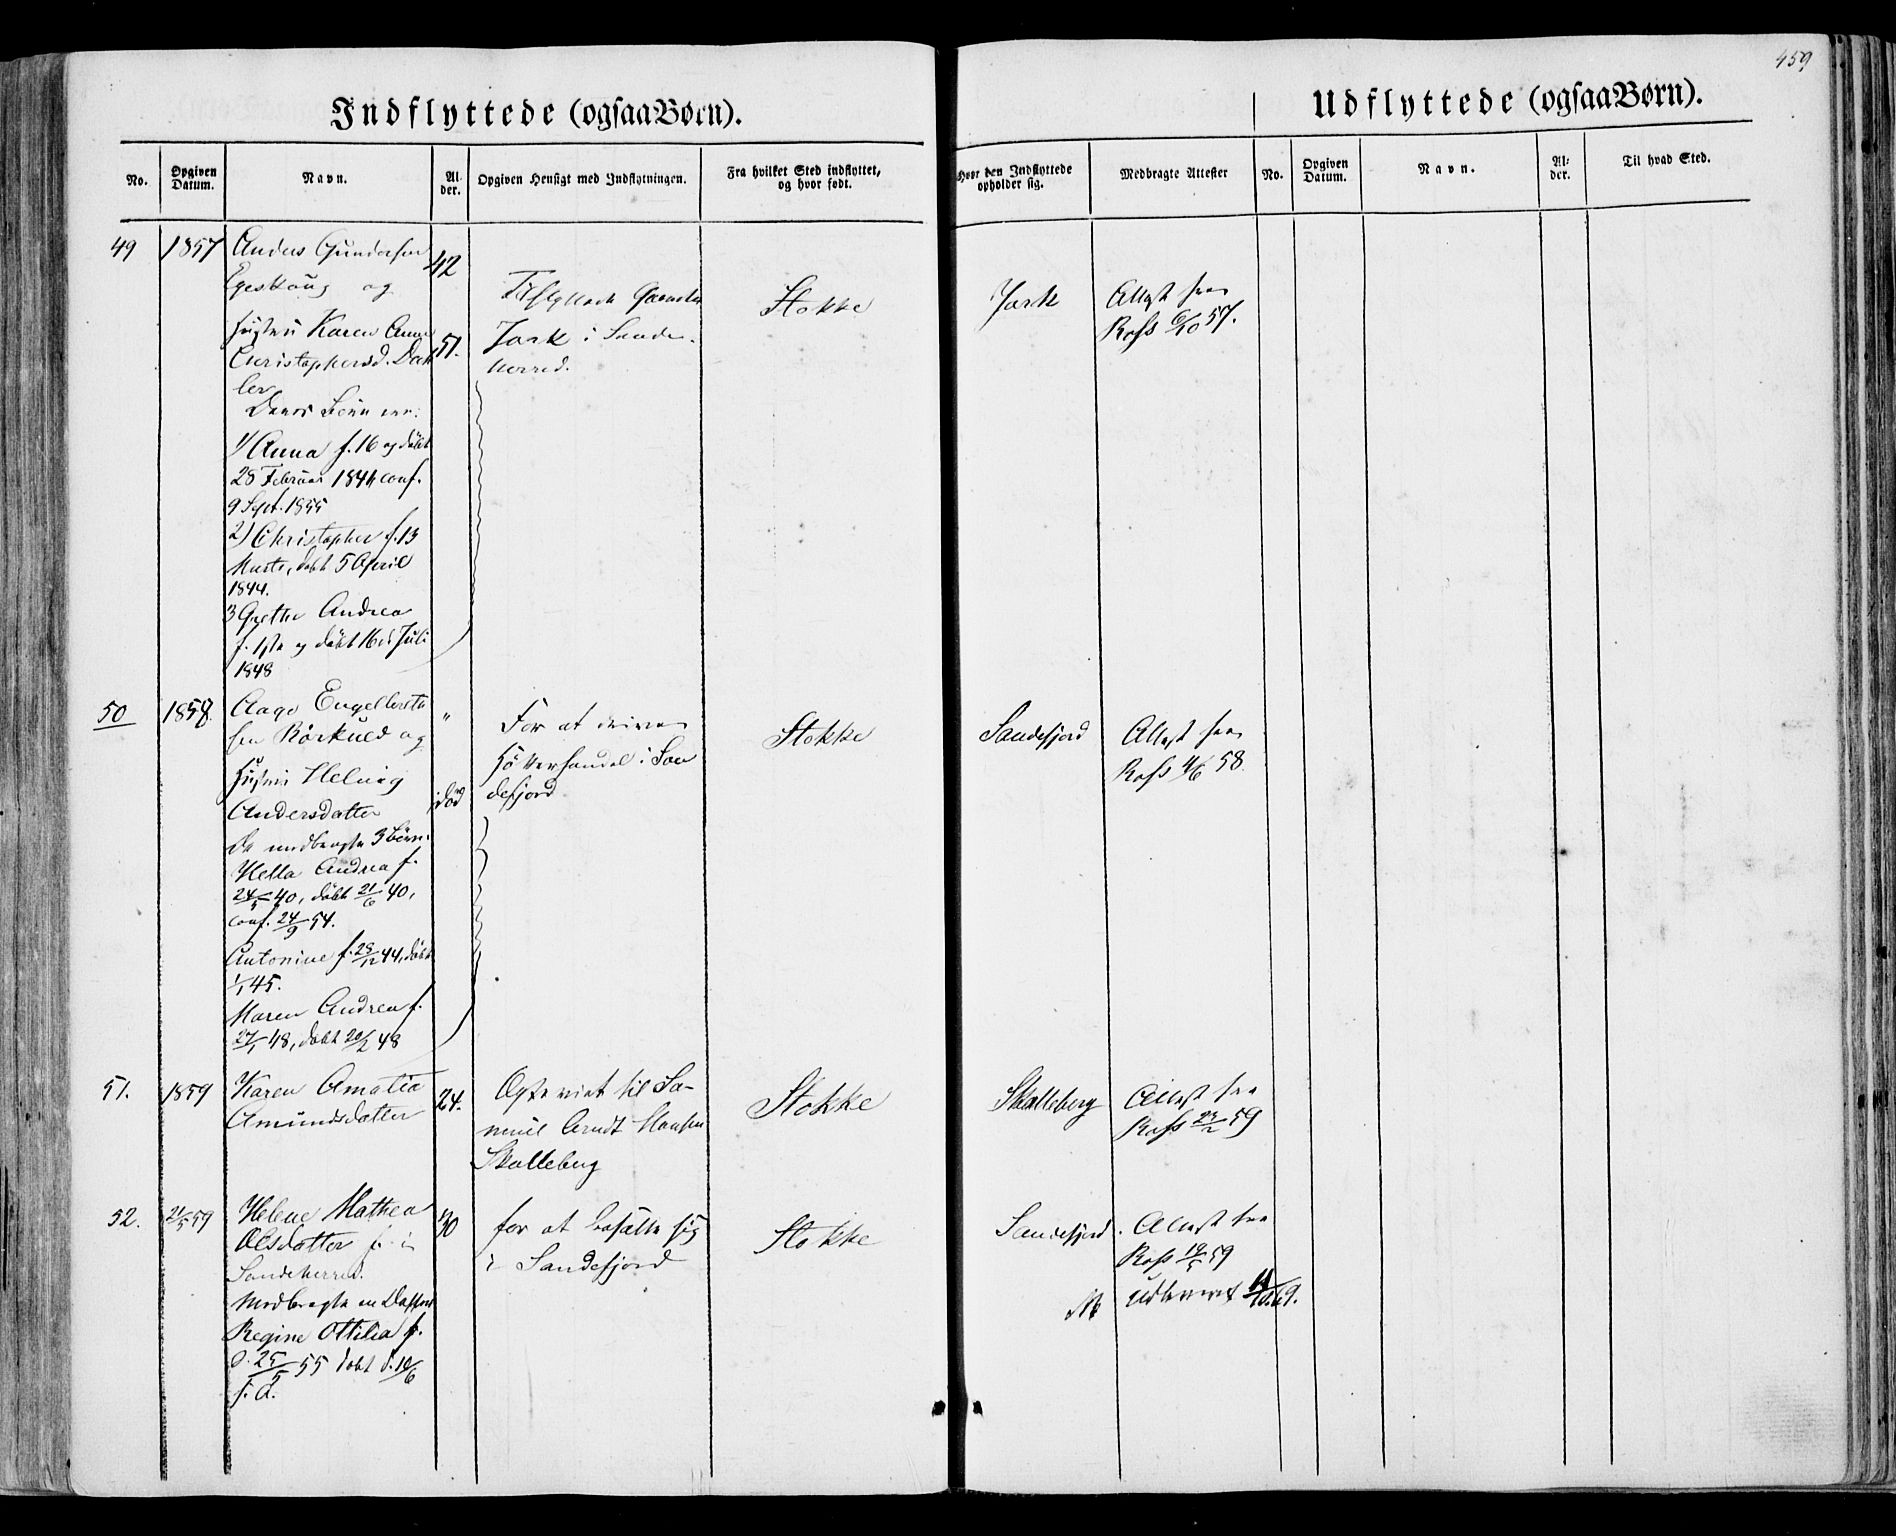 459
Indflyttede (ogsaa Børn).
Udflyttede (ogsaa Børn).
No.
Opgiven Datum.
Navn.
Al-der.
Opgiven Hensigt med Indflytningen.
Fra hvilket Sted indflyttet, og hvor født.
Hvor den Indflyttede opholder sig.
Medbragte Attester
No.
Opgiven Datum.
Navn.
Al-der.
Til hvad Sted.
49 1857 Anders Gundersen 42
og
Hustru Karen Anne 51.
Christophersd. Dah
ler
Deres Børn ere:
1/ Anna f. 16 og døbt
28 Februar 1841 conf.
9 Sept. 1855
2) Christopher f. 13
Marts, døbt 5 April
1844.
3 Grethe Andrea
f. 1ste og døbt 16de Juli
1848
Tilflyttede Gaarden
Jork i Sande-
herred.
Stokke
Jork
Attest fra
Rofs 6/10 57.
50 1858. Aage Engelbrets
sen Rørkuld og
Hustru Helvig
Andersdatter død
De medbragte 3 børn.
Hella Andrea f.
24/5 40, døbt 21/6 40,
conf. 24/9 54.
Antonine f. 28/12 44, døbt
1/1 45.
Maren Andrea f.
27/1 48, døbt 20/2 48
For at drive
Høkerhandel i San
defjord
Stokke
Sandefjord
Attest fra
Rofs 4/6 58.
51. 1859 Karen Amalia 24.
Amundsdatter
Ægteviet til Sa-
muel Arndt Hansen
Skalleberg
Stokke
Skalleberg
Attest fra
Rofs 23/2 59
52. 21/5 59 Helene Mathea 30
Olsdatter f. i
Sandeherred.
Medbragte en Datter
Regine Ottilia f.
d. 25/5 55 døbt d. 10/6
s. A.
for at bosætte sig
i Sandefjord
Stokke
Sandefjord.
Attest fra
Rofs 19/5 59
Udleveret